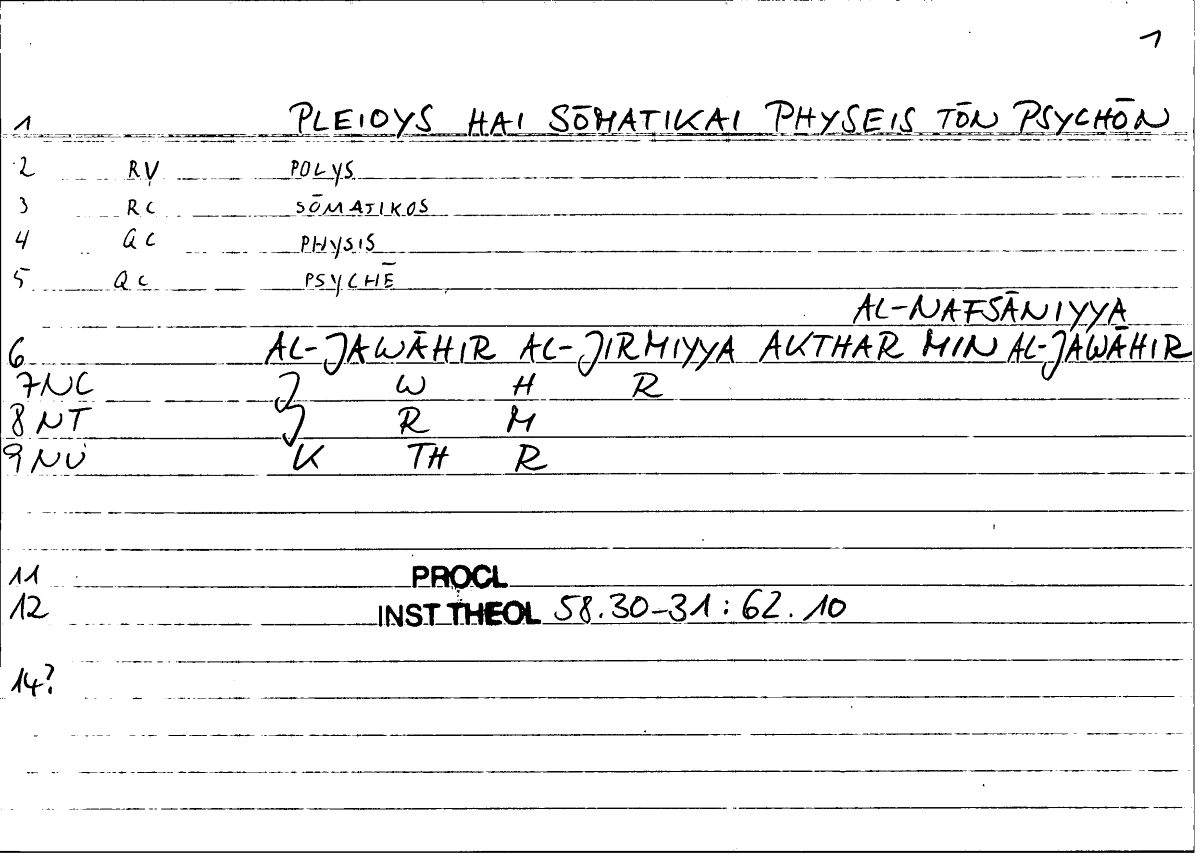 1
1 PLEIOYS HAI SŌMATIKAI PHYSEIS TŌN PSYCHŌN
2 RV POLYS
3 RC SŌMATIKOS
4 QC PHYSIS
5 QC PSYCHĒ
AL-NAFSĀNIYYA
6 AL-JAWĀHIR AL-JIRMIYYA AKTHAR MIN AL-JAWĀHIR
7NC J W H R
8 NT J R M
9 NU K TH R
11 PROCL
12 INST THEOL 58.30-31 : 62.10
14?